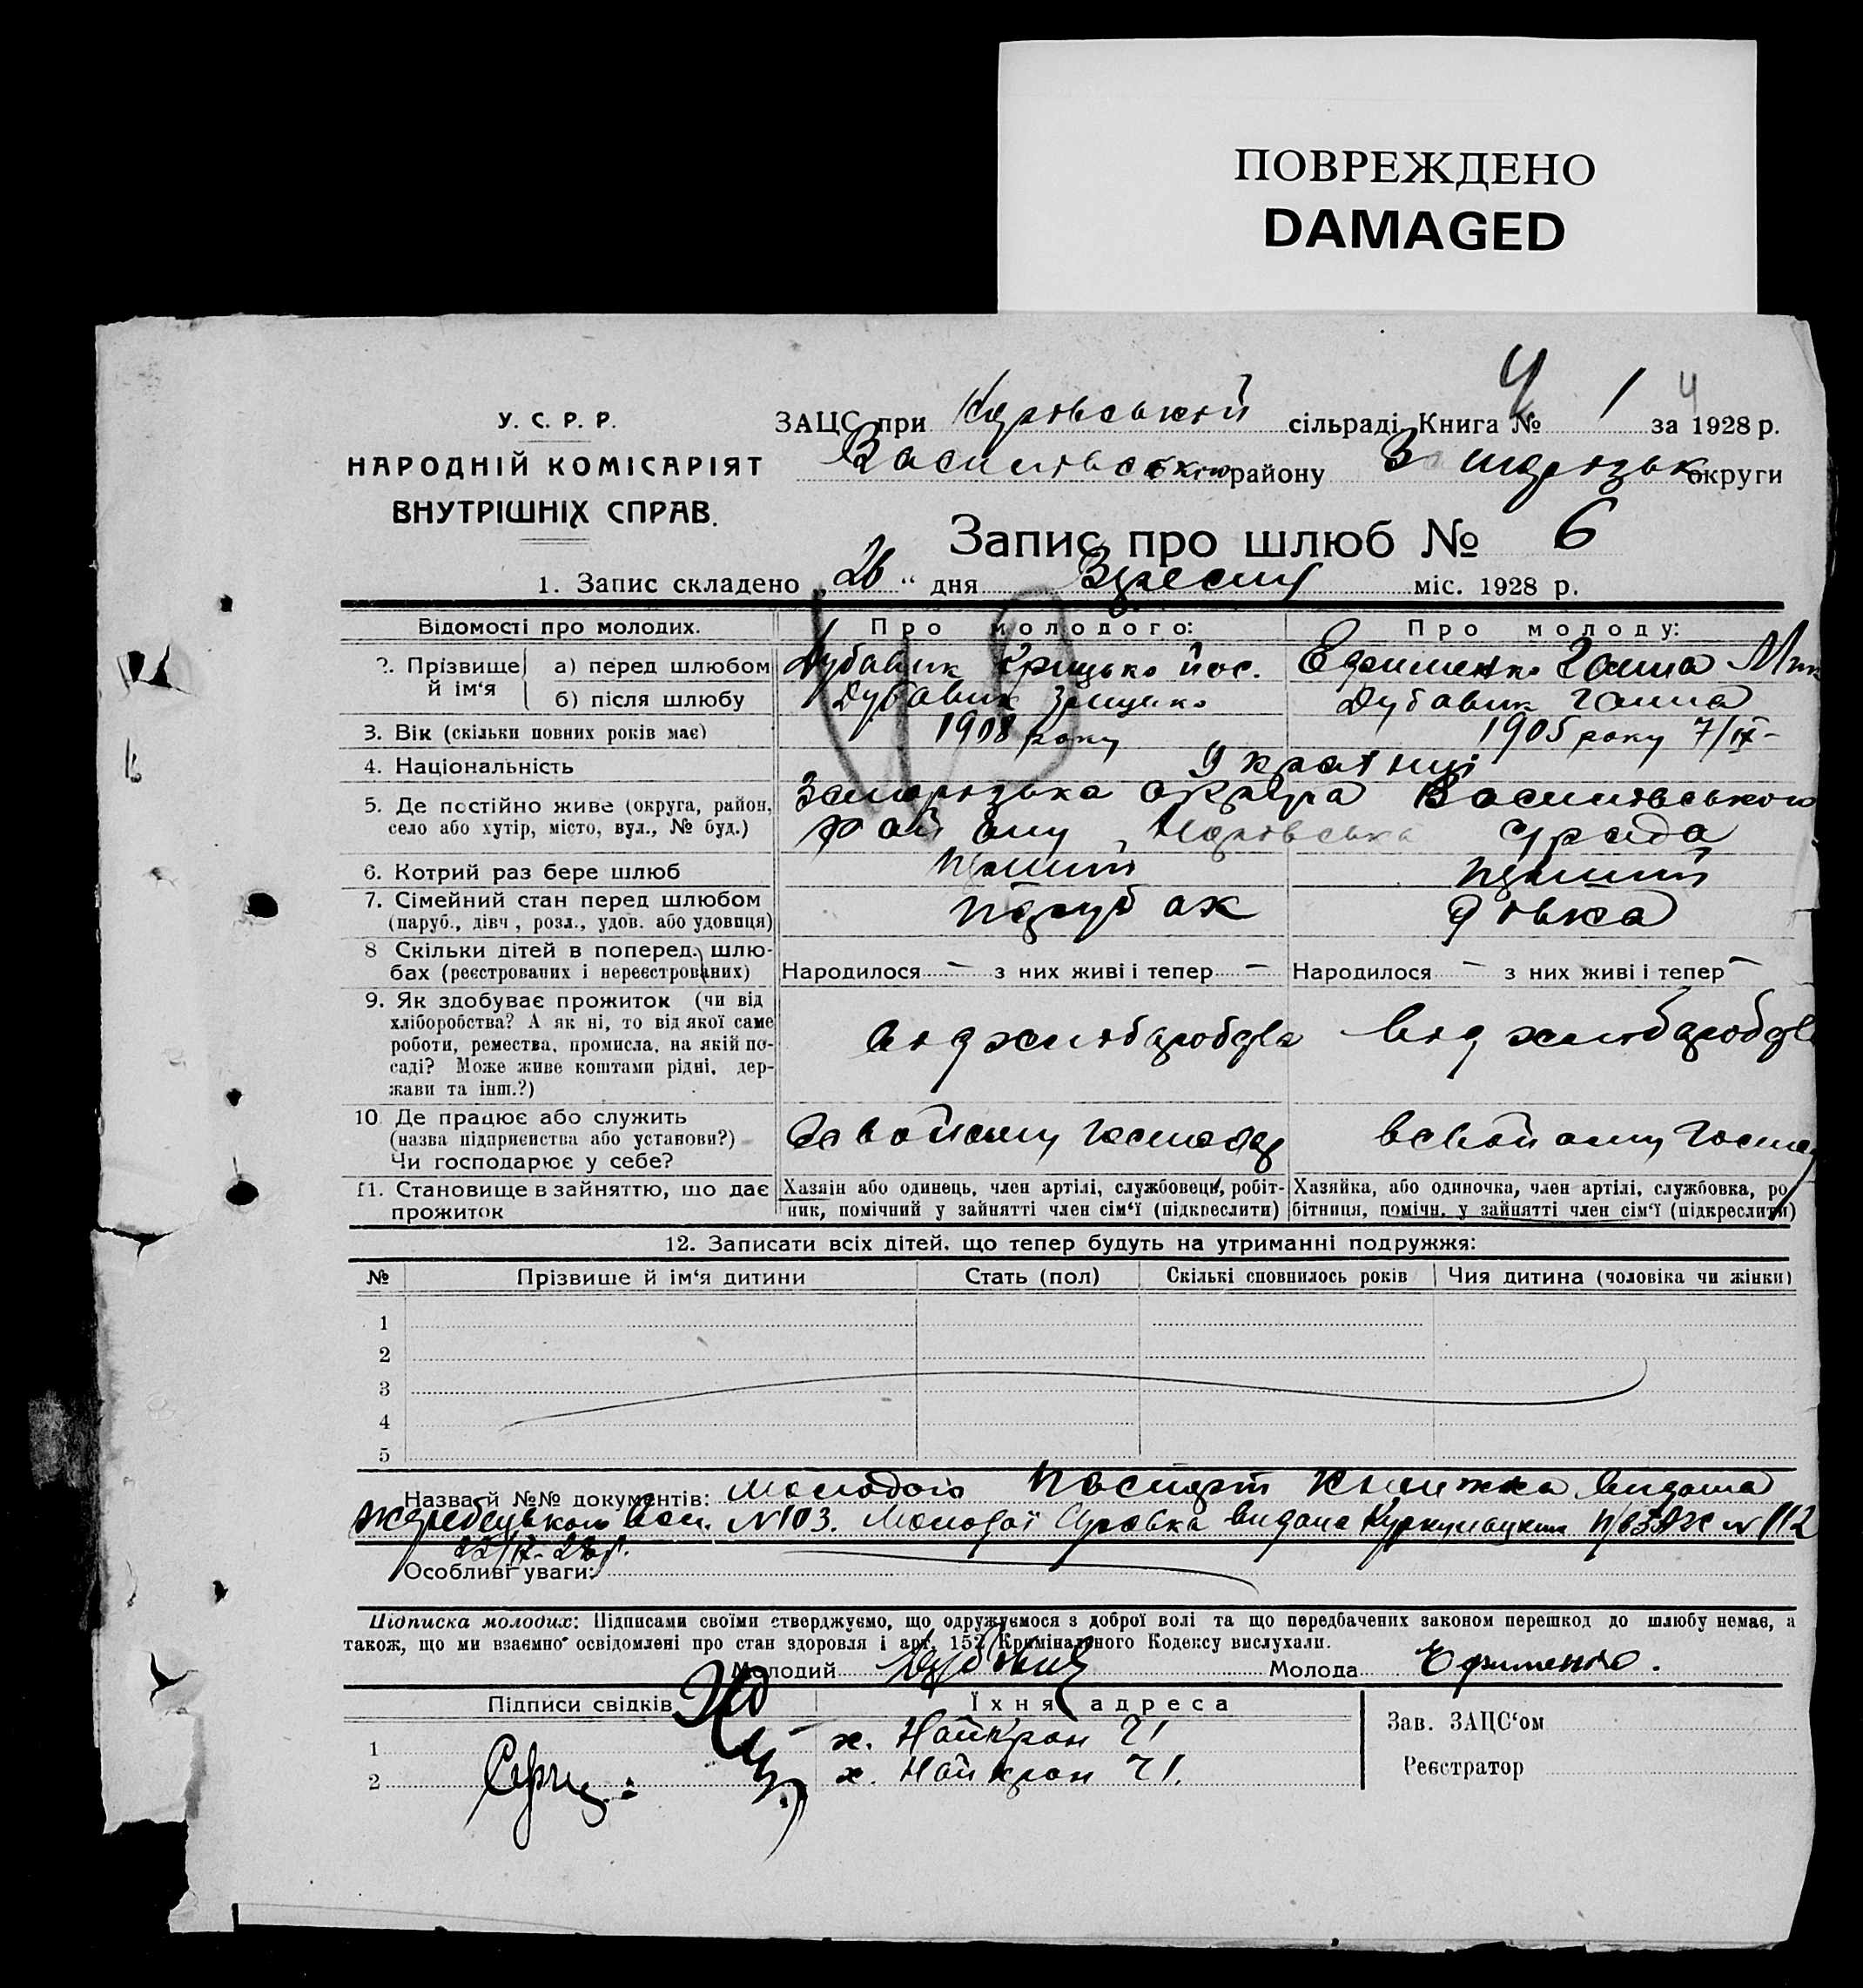 ПОВРЕЖДЕНО
DAMAGED
У. С. Р. Р.
НАРОДНІЙ КОМІСАРІЯТ
ВНУТРІШНІХ СПРАВ.
ЗАЦС при сільраді Книга № 1 за 1928 р.
Василівського району округи
Запис про шлюб № 6
1. Запис складено „26" дня Вресня міс. 1928 р.
Відомості про молодих.
Про молодого:
Про молоду:
2. Прізвище й ім'я
а) перед шлюбом
Дубавик Грицько Йос.
Ефименко Ганна Мик
б) після шлюбу
Дубавик Грицько
Дубавик Ганна
3. Вік (скільки повних років має)
1908 року
1905 року 7/ІХ-
4. Національність
Україниці
5. Де постійно живе (округа, район,
село або хутір, місто, вул., № буд.)
Запорізька округа Василівського
району, с/рада
6. Котрий раз бере шлюб
перший
перший
7. Сімейний стан перед шлюбом
(паруб., дівч., розл., удов. або удовиця)
парубок
дівка
8 Скільки дітей в поперед. шлю-
бах (реєстрованих і нереєстрованих)
Народилося — з них живі і тепер —
Народилося — з них живі і тепер —
9. Як здобуває прожиток (чи від
хліборобства? А як ні, то від якої саме
роботи, ремества, промисла, на якій по-
саді? Може живе коштами рідні, дер-
жави та інш.?)
від хліборобства
від хліборобства
10 Де працює або служить
(назва підприємства або установи?)
Чи господарює у себе?
в свойому господар
в свойому госпо
11. Становище в зайняттю, що дає
прожиток
Хазяін або одинець, член артілі, службовець, робіт-
ник, помічний у зайнятті член сім'ї (підкреслити)
Хазяйка, або одиночка, член артілі, службовка, ро
бітниця, помічн. у зайнятті член сім'ї (підкреслити)
12. Записати всіх дітей, що тепер будуть на утриманні подружжя:
№ Прізвише й ім'я дитини Стать (пол) Скількі сповнилось років Чия дитина (чоловіка чи жінки)
1
2
3
4
5
Назва й №№ документів: Молодого Паспорт книжка видана
Вол. N 103. Молодої справка видана N 112
22/ІХ-28 р.
Особливі уваги:
Підписка молодих: Підписами своїми стверджуємо, що одружуємося з доброї волі та що передбачених законом перешкод до шлюбу немає, а
також, що ми взаємно освідомлені про стан здоровля і арт. 152 Кримінального Кодексу вислухали.
Молодий Дубовик Молода Ефименко.
Підписи свідків
Їхня адреса
Зав. ЗАЦС'ом
1 х. Найкрон 21
Реєстратор
2 х. Найкрон 21.